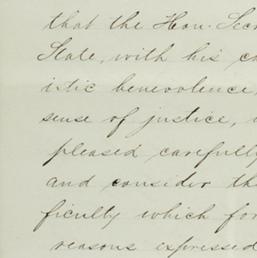 that the Hon. Secr
State, with his c
istic benevolence,
sense of justice,
pleased carefully
and consider th
ficulty which for
reasons expressed